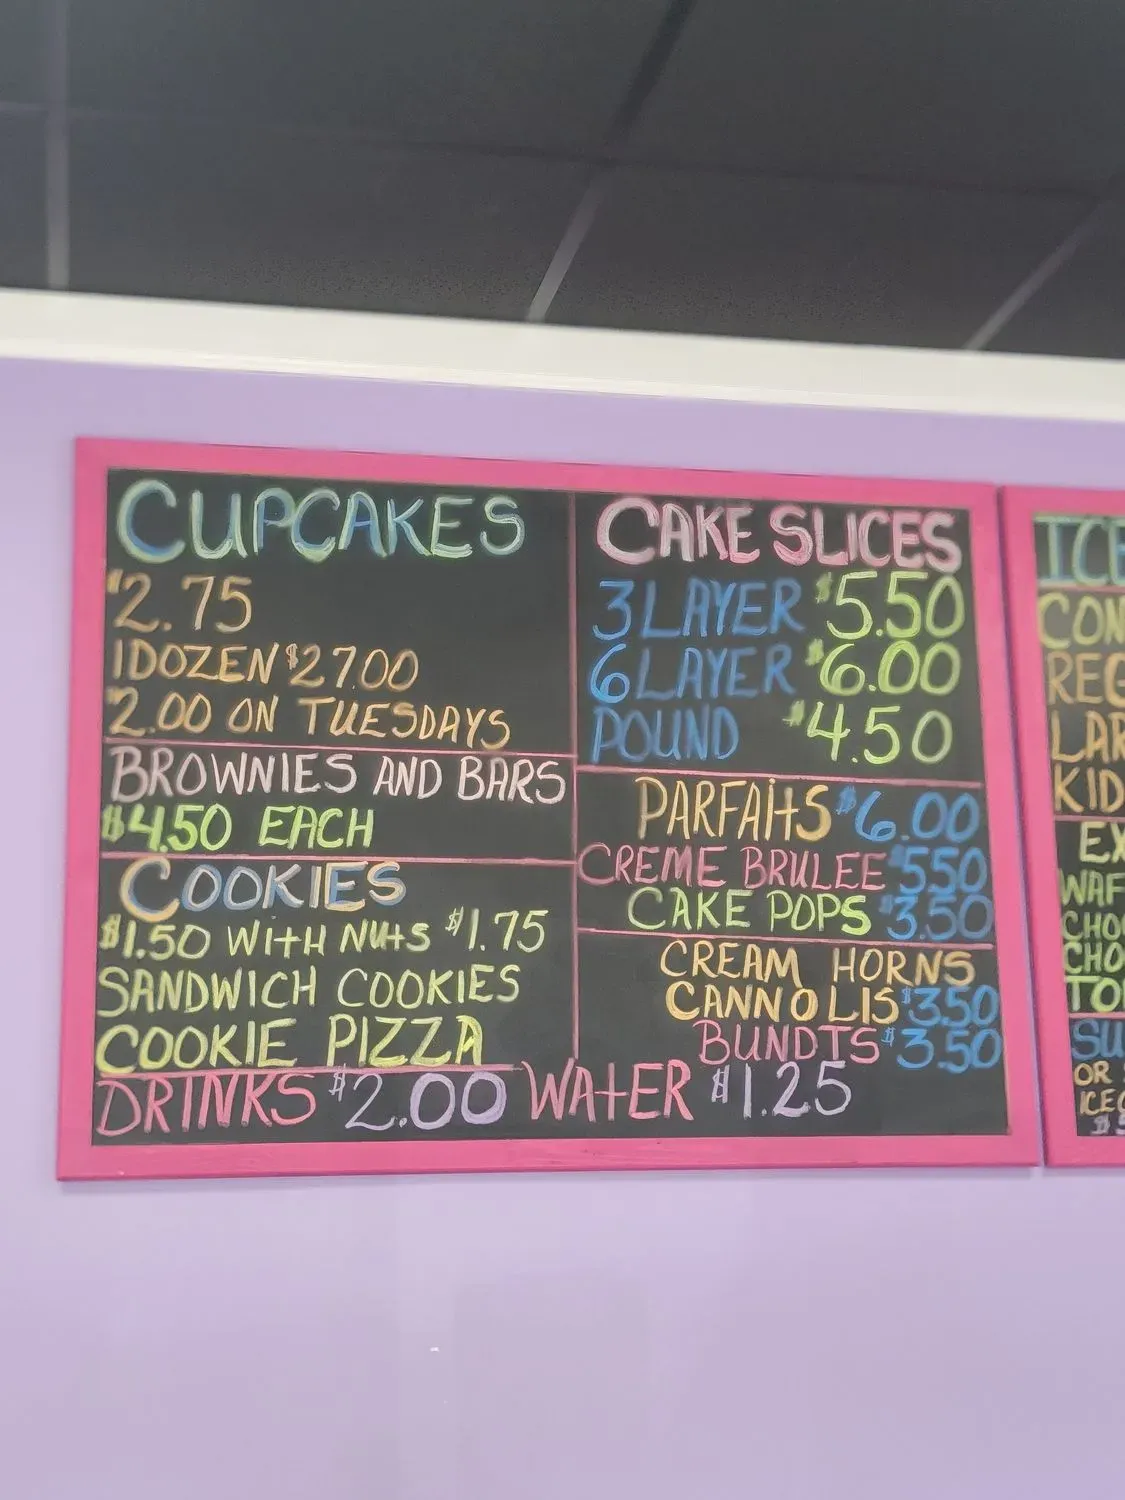 CUPCAKES
$2.75
1DOZEN $27.00
$2.00 ON TUESDAYS
BROWNIES AND BARS
$4.50 EACH
COOKIES
$1.50 WITH NUTS $1.75
SANDWICH COOKIES
COOKIE PIZZA
CAKE SLICES
3 LAYER $5.50
6 LAYER $6.00
POUND $4.50
PARFAITS $6.00
CREME BRULEE $5.50
CAKE POPS $3.50
CREAM HORNS
CANNOLIS $3.50
BUNDTS $3.50
DRINKS $2.00 WATER $1.25
ICE
CON
REG
LAR
KID
EX
WAF
CHO
CHO
TO
SU
OR
ICE